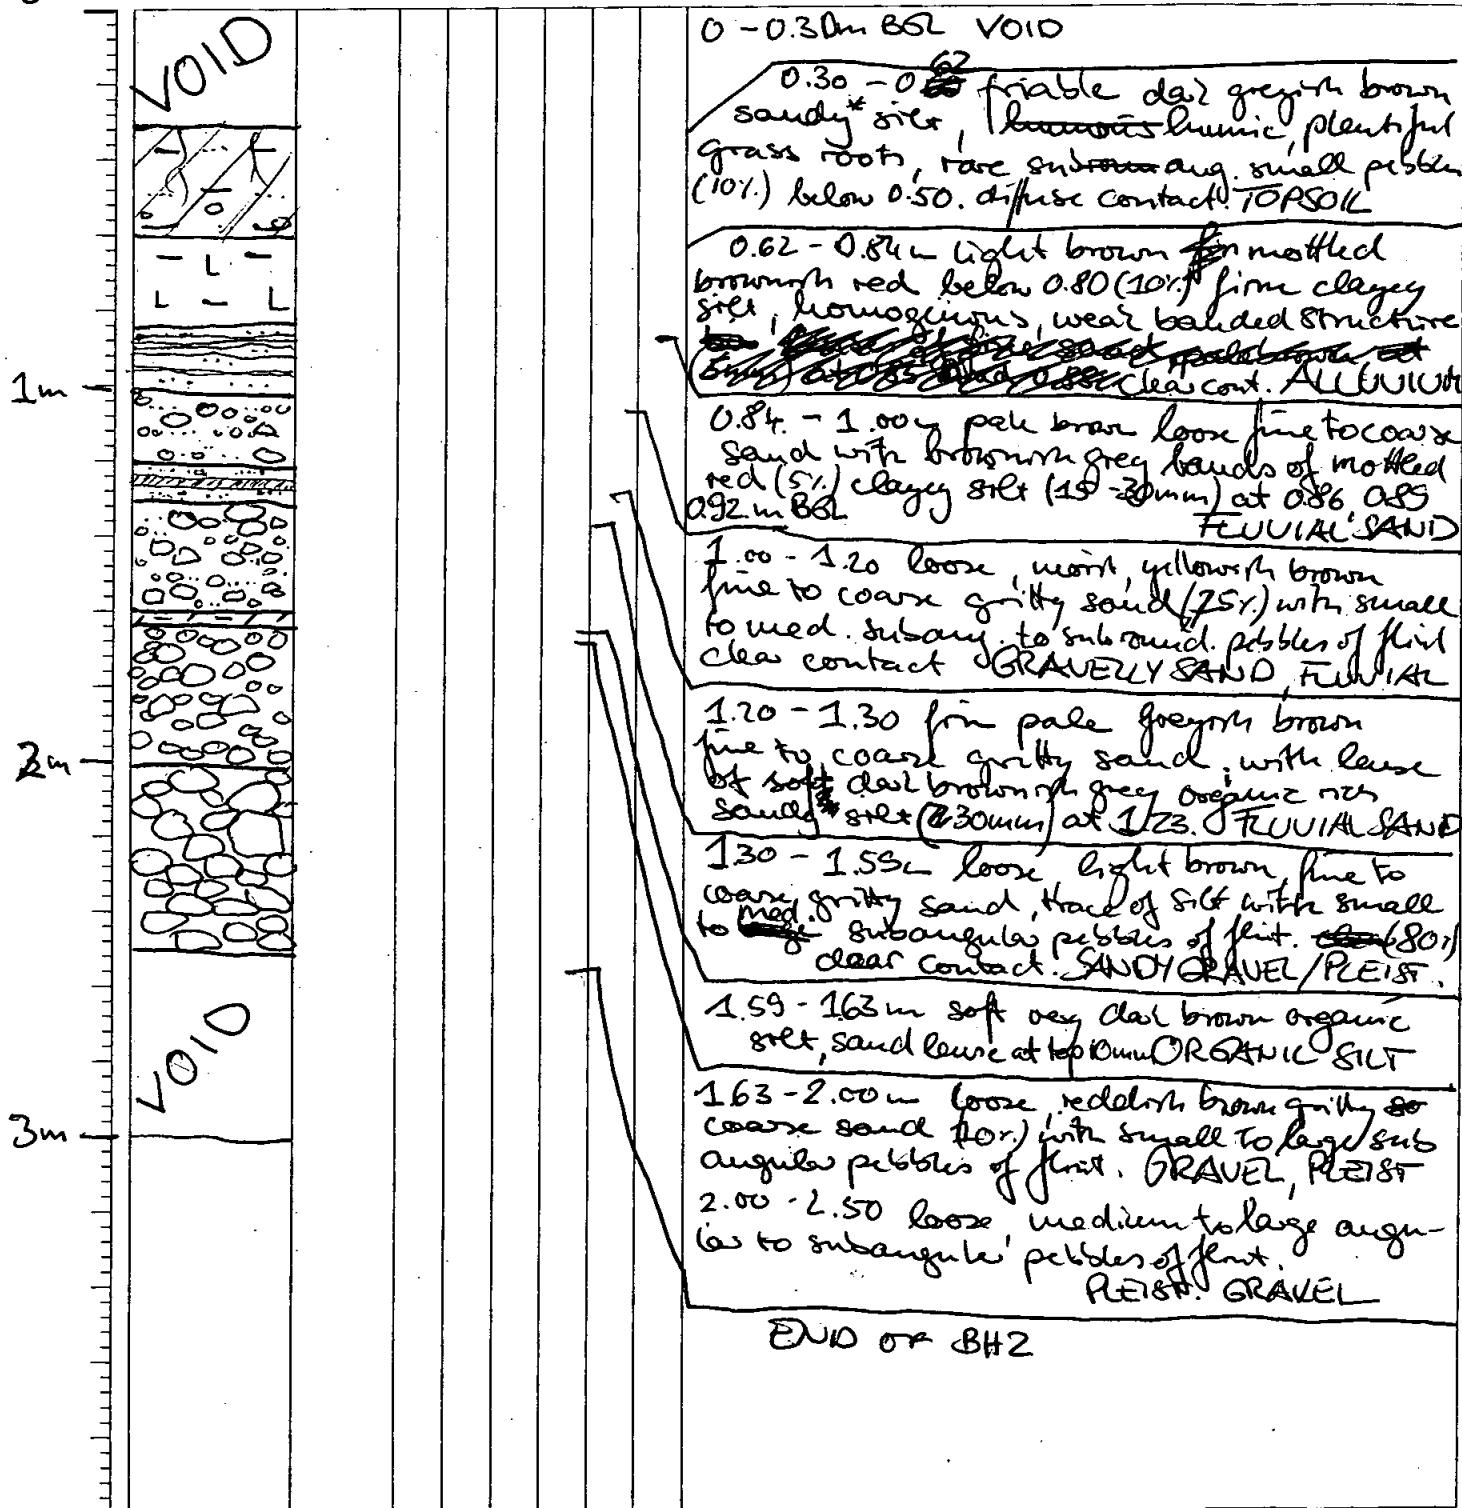 VOID
1m
2m
VOID
3m
0 - 0.30m BGL VOID
0.30 - 0.62 friable dark greyish brown
sandy* silt, humic, plentiful
grass roots, rare subang. small pebbles
(10%) below 0.50. diffuse contact. TOPSOIL
0.62 - 0.84m light brown mottled
brownish red below 0.80 (10%) firm clayey
silt, homoginous, weak banded structure
clear cont. ALLUVIUM
0.84 - 1.00m pale brown loose fine to coarse
sand with brownish grey bands of mottled
red (5%) clayey silt (15-30mm) at 0.86, 0.89
0.92m BGL
FLUVIAL SAND
1.00 - 1.20 loose, moist, yellowish brown
fine to coarse gritty sand (75%) with small
to med. subang. to subround. pebbles of flint
clear contact GRAVELLY SAND, FLUVIAL
1.20 - 1.30 firm pale greyish brown
fine to coarse gritty sand, with lense
of soft dark brownish grey organic rich
sandy silt (30mm) at 1.23. FLUVIAL SAND
1.30 - 1.59m loose, light brown, fine to
coarse, gritty sand, trace of silt with small
to med. subangular pebbles of flint. (80%)
clear contact. SANDY GRAVEL/PLEIST.
1.59 - 1.63m soft very dark brown organic
silt, sand lense at top 10mm ORGANIC SILT
1.63 - 2.00m loose, reddish brown gritty
coarse sand (10%) with small to large sub
angular pebbles of flint. GRAVEL, PLEIST
2.00 - 2.50 loose, medium to large angu-
lar to subangular pebbles of flint.
PLEIST. GRAVEL
END OF BH2